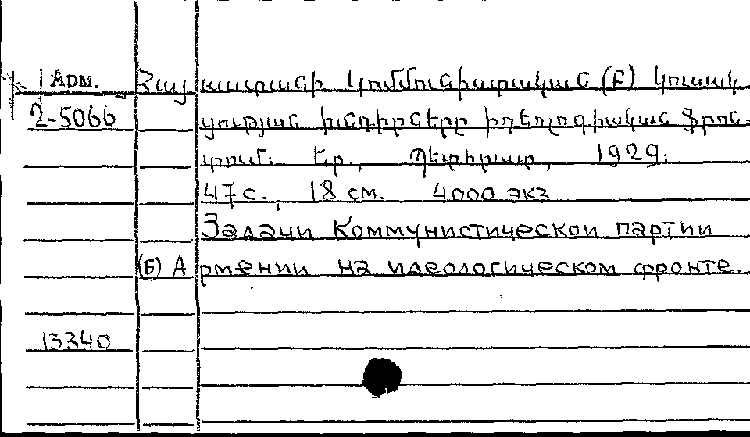 Арм. Հայաստանի կոմմունիստական (Բ) կուսակ
2-5066 ցության խնդիրները իդեոլոգիական ֆրոն
տում. Եր., Պետհրատ, 1929.
47 с., 18 см. 4000 экз
Задачи Коммунистической партии
(Б) Армении на идеологическом фронте.
13340